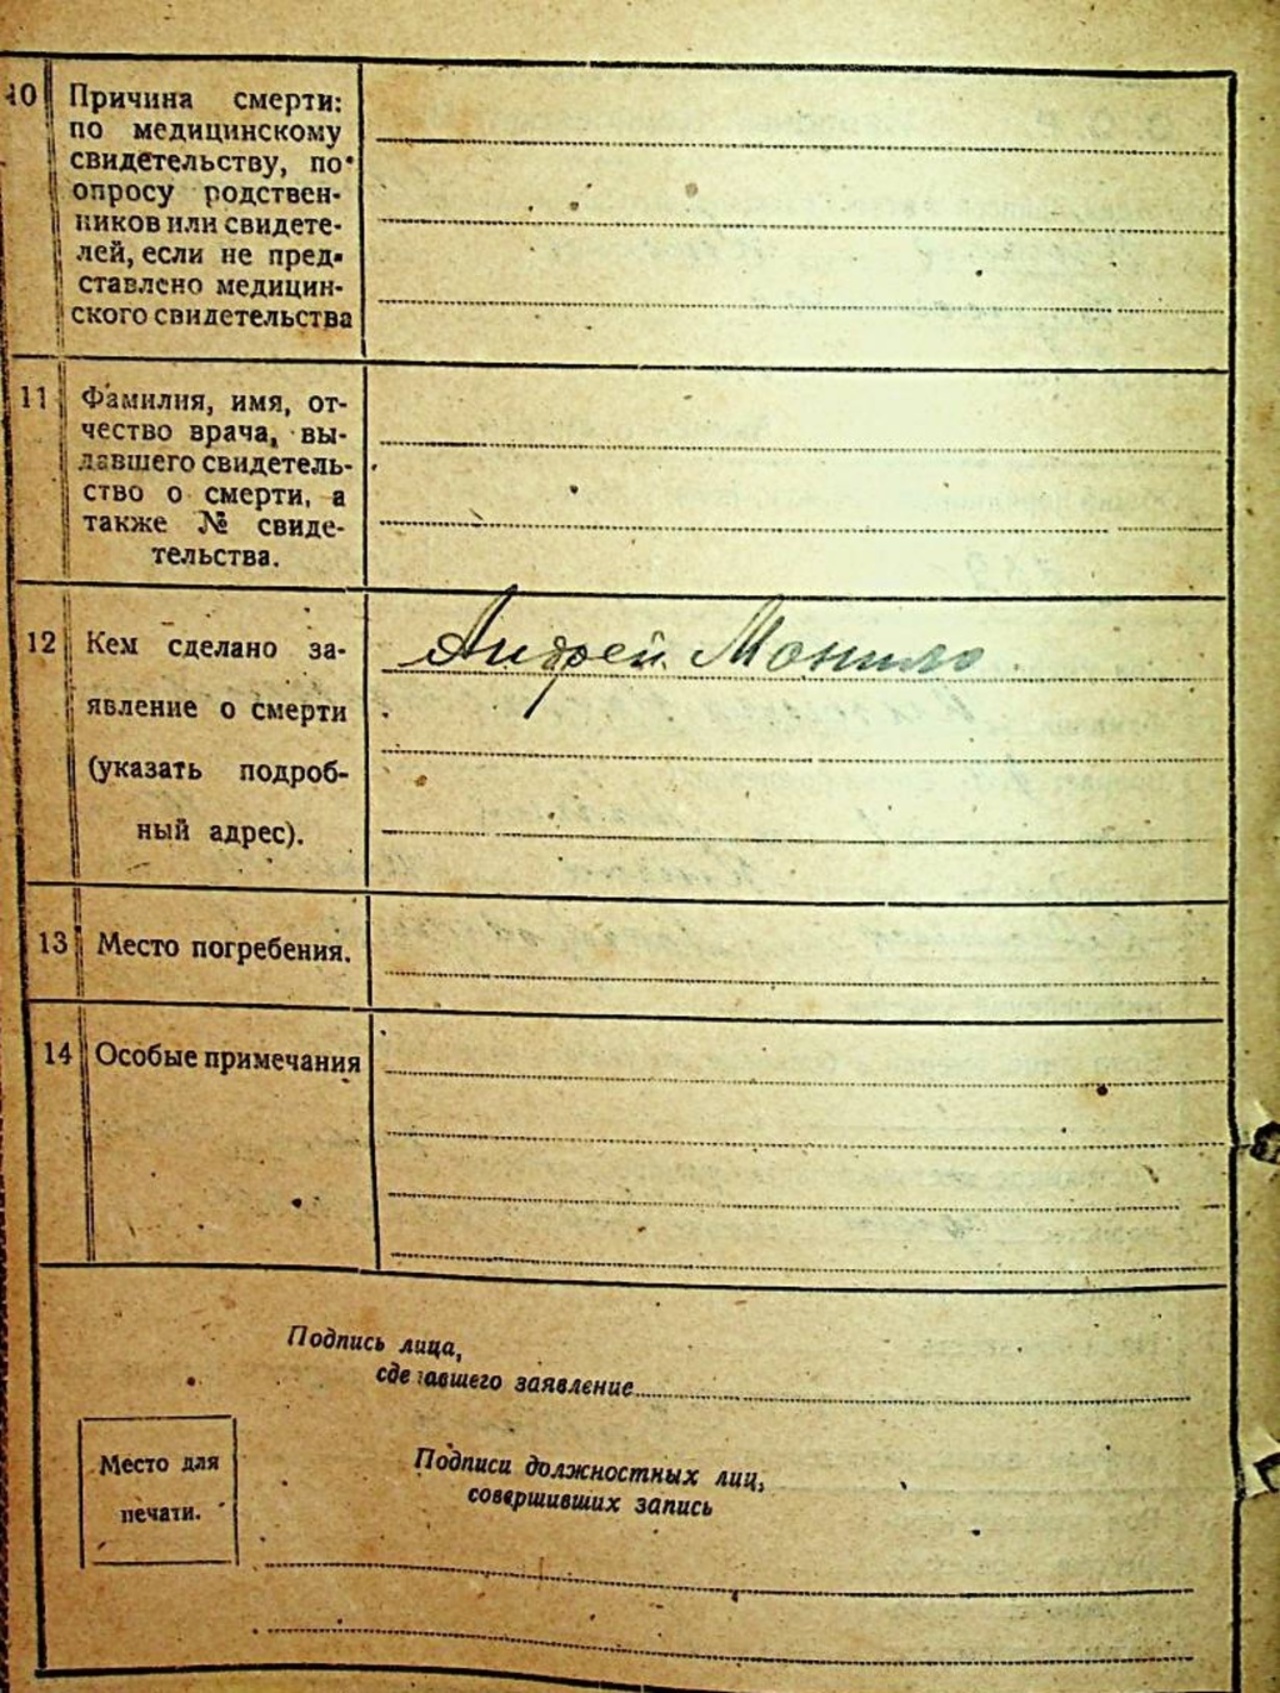 10 Причина смерти:
по медицинскому
свидетельству, по
опросу родствен-
ников или свидете-
лей, если не пред-
ставлено медицин-
ского свидетельства
11 Фамилия, имя, от-
чество врача, вы-
давшего свидетель-
ство о смерти, а
также № свиде-
тельства.
12 Кем сделано за-
явление о смерти
(указать подроб-
ный адрес).
Андрей Монило
13 Место погребения.
14 Особые примечания
Подпись лица,
сделавшего заявление
Место для
печати.
Подписи должностных лиц,
совершивших запись